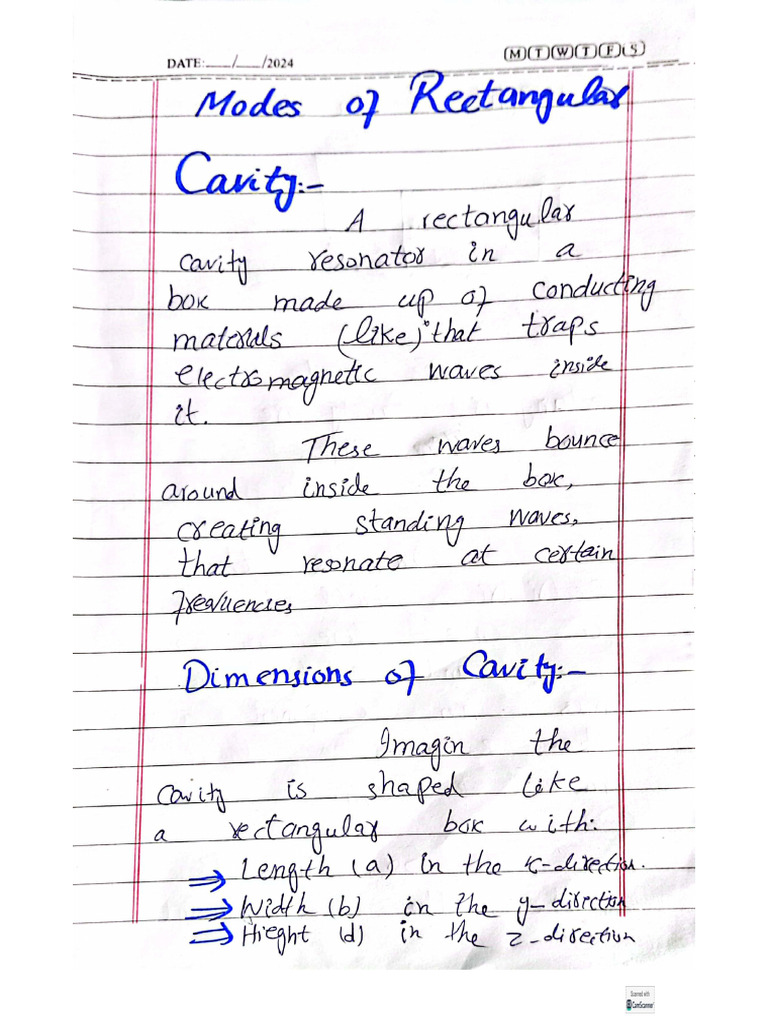 DATE:___/___/2024
M T W T F S
Modes of Rectangular
Cavity:-
A rectangular
cavity resonator in a
box made up of conducting
materials (like) that traps
electromagnetic waves inside
it.
These waves bounce
around inside the box,
creating standing waves,
that resonate at certain
frequencies
Dimensions of Cavity:-
Imagin the
Cavity is shaped like
a rectangular box with:
⇒ Length (a) in the x-direction.
⇒ Width (b) in the y-direction
⇒ Hieght (d) in the z-direction
Scanned with
CamScanner